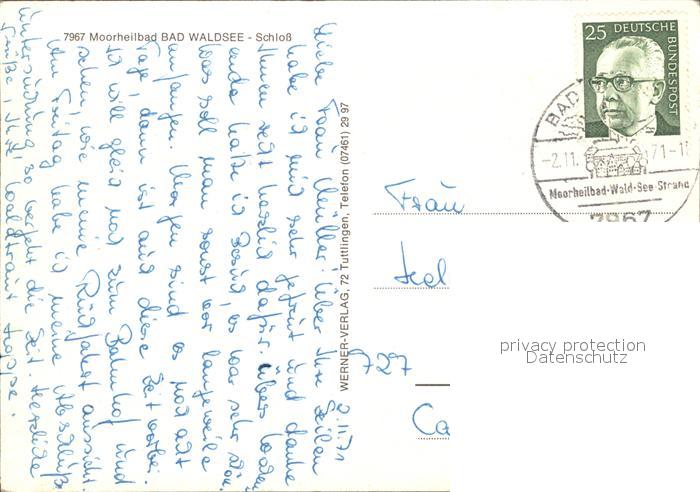 7967 Moorheilbad BAD WALDSEE - Schloß
2.11.71
Liebe Frau Müller! Über Ihre Zeilen
habe ich mich sehr gefreut und danke
Ihnen recht herzlich dafür. Übers Wochen-
ende hatte ich Besuch, es war sehr schön.
Was soll man sonst vor langeweile
anfangen. Morgen sind es noch acht
Tage, dann ist auch diese Zeit vorbei.
Ich will gleich noch zum Bahnhof und
sehen, wie meine Rückfahrt aussieht.
Am Freitag habe ich meine Abschluß-
untersuchung, so vergeht die Zeit. Herzliche
Grüße, Ihre Waldtraut
WERNER-VERLAG, 72 Tuttlingen, Telefon (07461) 29 97
25 DEUTSCHE
BUNDESPOST
BAD
-2.11.71-1
Moorheilbad-Wald-See-Strand
7967
Frau
727
Ca
privacy protection
Datenschutz